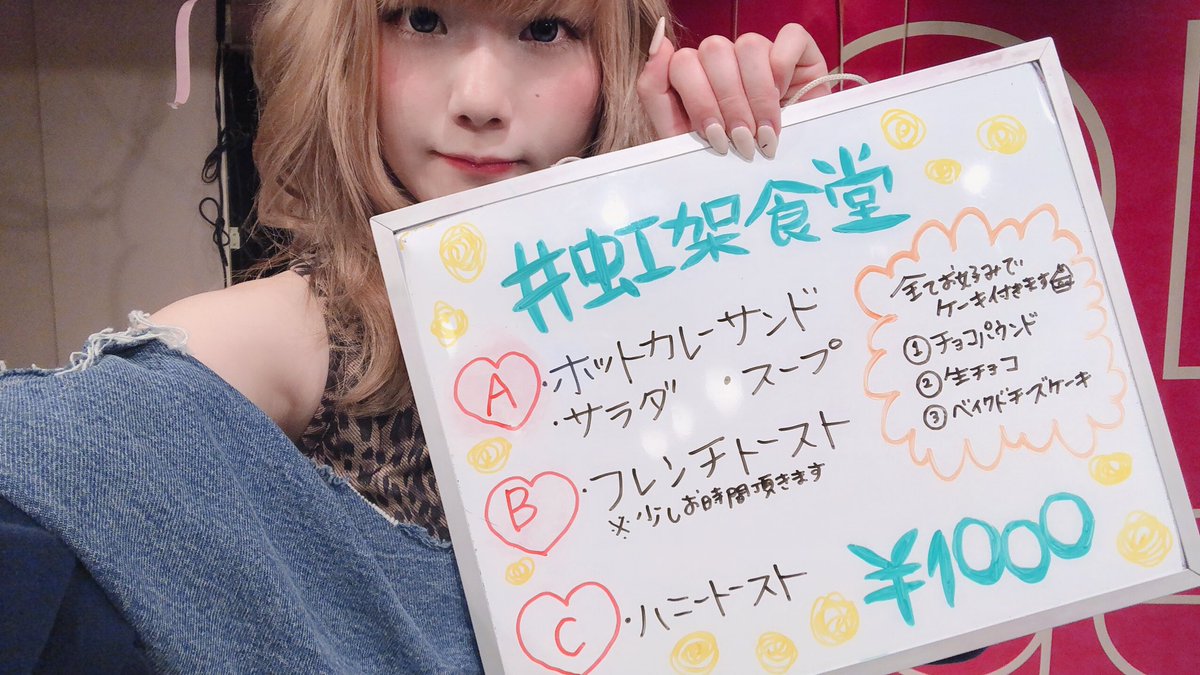 #虹架食堂
A ・ホットカレーサンド
・サラダ ・スープ
B ・フレンチトースト
※少しお時間頂きます
C ・ハニートースト
全てお好みで
ケーキ付きます
①チョコパウンド
②生チョコ
③ベイクドチーズケーキ
¥1000